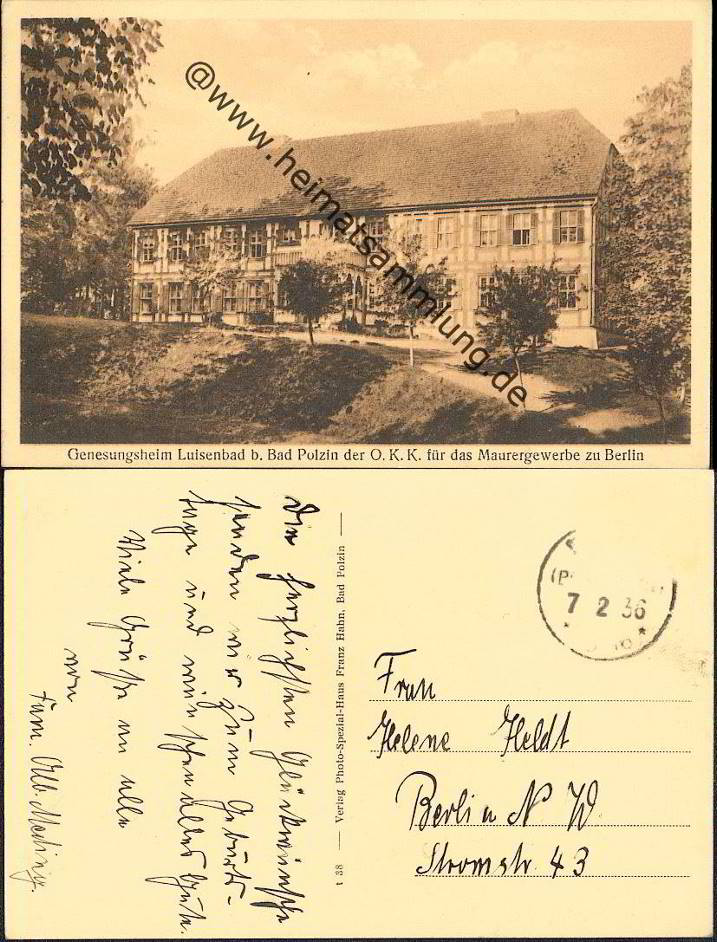 @www.heimatsammlung.de
Genesungsheim Luisenbad b. Bad Polzin der O. K. K. für das Maurergewerbe zu Berlin
Die herzlichsten Glückwünsche
senden wir zum Geburts-
tage und wünschen alles Gute.
Viele Grüße an alle
von
Fam. Alb.
t 38 — Verlag Photo-Spezial-Haus Franz Hahn, Bad Polzin —
7 2 36
Frau
Helene Heldt
Berlin N W
Stromstr. 43